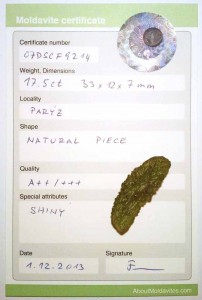 Moldavite certificate
Certificate number
C7DSCF9214
Weight, Dimensions
17.5ct 33x12x7mm
Locality
PARYZ
Shape
NATURAL PIECE
Quality
A++/+++
Special attributes
SHINY
Date
Signature
1.12.2013
AboutMoldavites.com